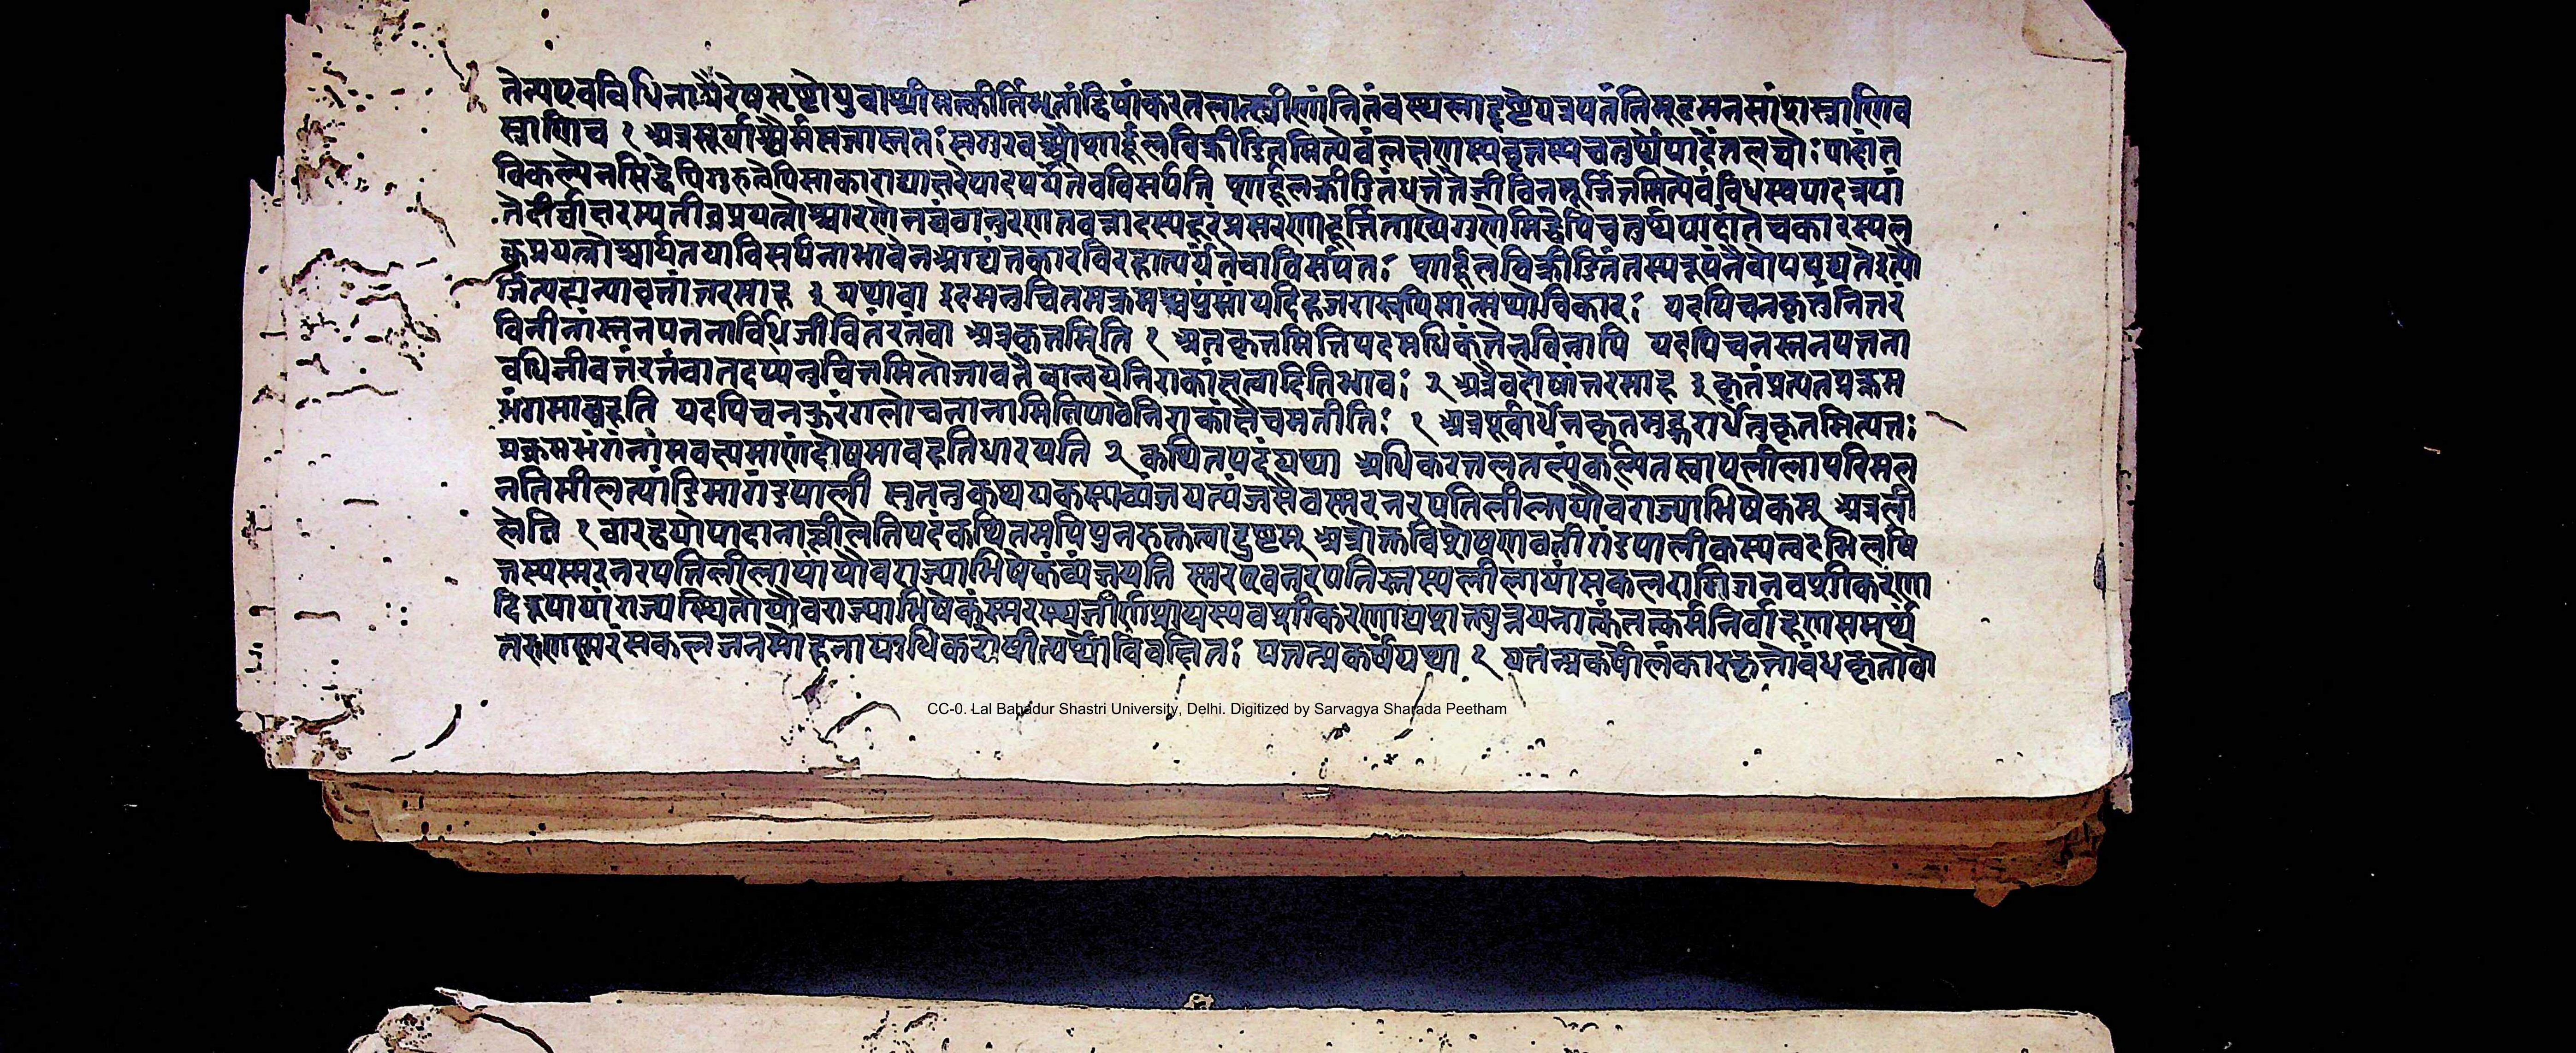 तेन्यएवविधिनायैरेषसृष्टोयुवाश्रीमत्कांतिभृतांद्विषांकरतलात्स्त्रीणांनितंबस्थलाद्दृष्टेयत्रपतंतिमूढमनसांशस्त्राणिव
स्त्राणिच १ अत्रसूर्याश्वैर्मसजास्ततः सगुरवःशार्दूलविक्रीडितमित्येवंलक्षणस्यवृत्तस्यचतुर्थेपादेंतलघोः पादांत
विकल्पेनसिद्धेपिगुरुत्वेपिसाकाराद्याक्षरेपादपर्यंतेवविसर्पति शार्दूलक्रीडितंधत्तेतेजीवितमूर्जितमित्येवंविधस्थपादत्रयां
तेदीर्घाक्षरस्यतीव्रप्रयत्नोच्चारणेन दूरंप्रसरणादूर्जिताख्येगुणेसिद्धेपिचतुर्थपादांतेचकारस्यल
घुप्रयत्नोच्चार्यतयाविसर्पनाभावेनआद्यंतकारविरहात्पर्यंतेचाविसर्पतः शार्दूलविक्रीडितंतस्यरूपंनैवोपपद्यतेइत्यो
र्जित्यहान्यावृत्तांतरमाह ३ यथावा इदमनुचितमक्रमश्चपुंसांयदिहजरास्वपिमान्मथोविकारः यदपिचनकृतंनितं
विनीनांस्तनपतनावधिजीवितंरतंवा अत्रकृतमिति १ अत्रकृतमितिपदमधिकंतेनविनापि यदपिचनस्तनपतना
वधिजीवतंरतंवातदप्यनुचितमितोजावतैवान्वयेनिराकांक्षत्वादितिभावः २ अत्रैवदोषांतरमाह ३ कृतंप्रत्यतप्रक्रम
भंगमावहति यदपिचनकुरंगलोचनानामितिपाठेनिराकांक्षैचमतीतिः १ अत्रपूर्वार्धेनकृतमुत्तरार्धेतुकृतमित्यतः
प्रक्रमभंगनांमवक्ष्यमाणंदोषमावहतिधारयति २ कथितपदंयथा अधिकरतलतल्पंकल्पितस्वापलीलापरिमल
नतिमीलत्पांडिमागंडपाली सुतनुकथयकस्यव्यंजयत्यंजसैवस्मरनरपतिलीलायौवराज्याभिषेकम् अत्रली
लेति १ वारद्वयोपादानाल्लीलेतिपदंकथितमपिपुनरुक्तत्वाद्दुष्टम् अत्रोक्तविशेषणवतीगंडपालीकस्यत्वदभिलषि
तस्यस्मरनरपतिलीलायांयौवराज्याभिषेकंव्यंजयति स्मरएवनरपतिस्तस्यलीलायांसकलरागिजनवशीकरणा
दिरूपायांराज्यस्थितौयौवराज्याभिषेकंस्मरस्यजीर्णप्रायस्यवशीकरणाय तत्कर्मनिर्वाहणसमर्थं
तरुणस्मरंसकलजनमोहनायाधिकरोषीत्यर्थोविवक्षितः पतत्प्रकर्षंयथा १ पतत्प्रकर्षोलंकारकृतोबंधकृतोवा
CC-0. Lal Bahadur Shastri University, Delhi. Digitized by Sarvagya Sharada Peetham